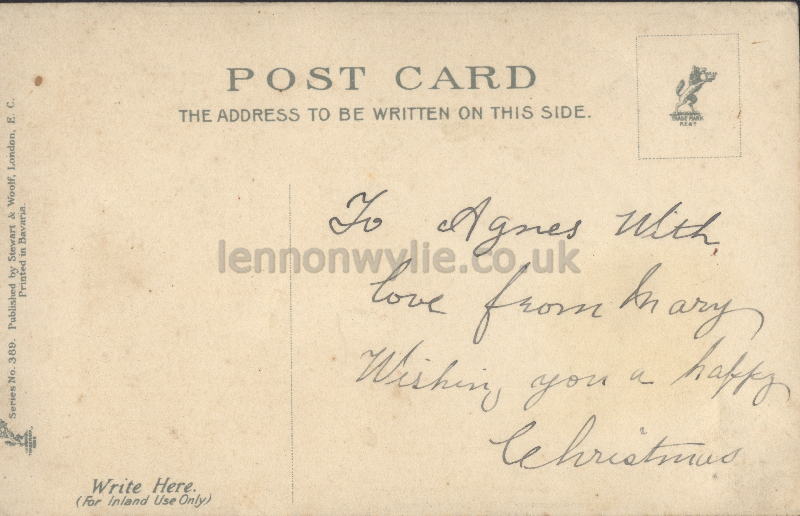 POST CARD
THE ADDRESS TO BE WRITTEN ON THIS SIDE.
TRADE MARK
To Agnes With
love from Mary
Wishing you a happy
Christmas
lennonwylie.co.uk
Series No. 389. Published by Stewart & Woolf, London, E. C.
Printed in Bavaria.
Write Here.
(For Inland Use Only)